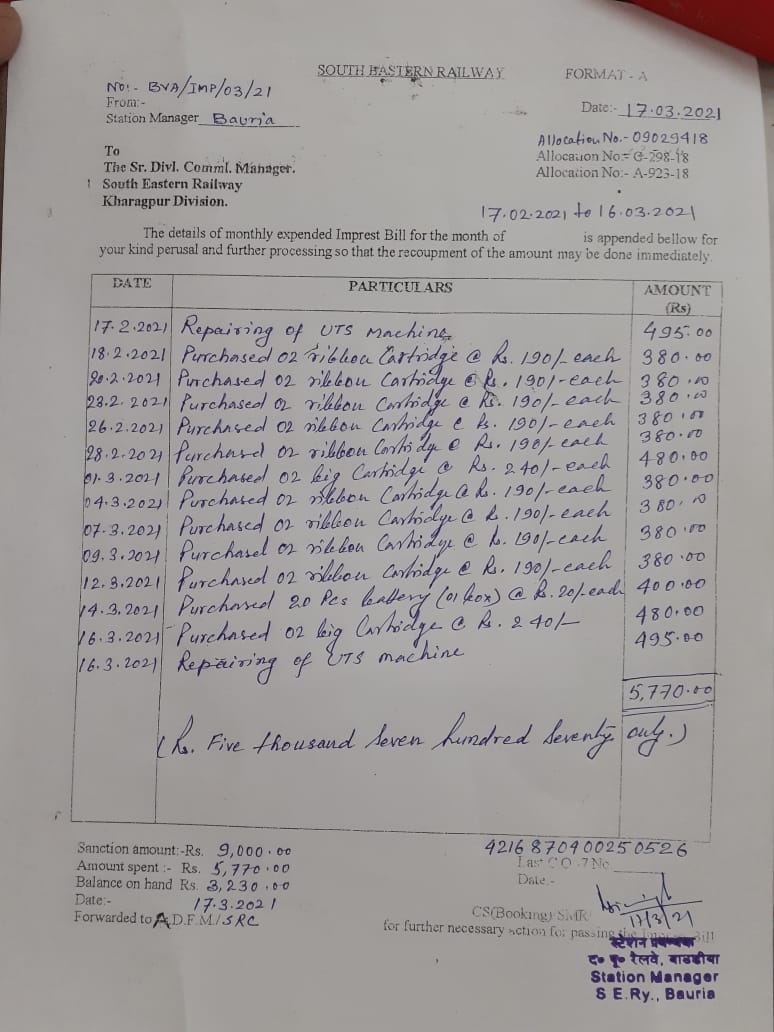 SOUTH EASTERN RAILWAY
FORMAT - A
No:- BVA/IMP/03/21
From:-
Station Manager Bauria
Date:- 17.03.2021
Allocation No.- 09029418
Allocation No:- G-298-18
Allocation No:- A-923-18
To
The Sr. Divl. Comml. Manager.
South Eastern Railway
Kharagpur Division.
17.02.2021 to 16.03.2021
The details of monthly expended Imprest Bill for the month of is appended bellow for
your kind perusal and further processing so that the recoupment of the amount may be done immediately.
DATE PARTICULARS AMOUNT (Rs)
17.2.2021 Repairing of UTS Machine 495.00
18.2.2021 Purchased 02 ribbon Cartridge @ Rs. 190/- each 380.00
20.2.2021 Purchased 02 ribbon Cartridge @ Rs. 190/- each 380.00
23.2.2021 Purchased 02 ribbon Cartridge @ Rs. 190/- each 380.00
26.2.2021 Purchased 02 ribbon Cartridge @ Rs. 190/- each 380.00
28.2.2021 Purchased 02 ribbon Cartridge @ Rs. 190/- each 380.00
01.3.2021 Purchased 02 big Cartridge @ Rs. 240/- each 480.00
04.3.2021 Purchased 02 ribbon Cartridge @ Rs. 190/- each 380.00
07.3.2021 Purchased 02 ribbon Cartridge @ Rs. 190/- each 380.00
09.3.2021 Purchased 02 ribbon Cartridge @ Rs. 190/- each 380.00
12.3.2021 Purchased 02 ribbon Cartridge @ Rs. 190/- each 380.00
14.3.2021 Purchased 20 Pcs battery (01 box) @ Rs. 20/- each 400.00
16.3.2021 Purchased 02 big Cartridge @ Rs. 240/- 480.00
16.3.2021 Repairing of UTS machine 495.00
5,770.00
(Rs. Five thousand Seven hundred Seventy only.)
Sanction amount:-Rs. 9,000.00
Amount spent :- Rs. 5,770.00
Balance on hand Rs. 3,230.00
Date:- 17.3.2021
Forwarded to A.D.F.M/SRC
42168709400250526
Last CO-7 No
Date:-
17/3/21
CS(Booking)/SMR
for further necessary action for passing the Bill
स्टेशन प्रबन्धक
द० पू० रेलवे, बाउडीया
Station Manager
S E.Ry., Bauria